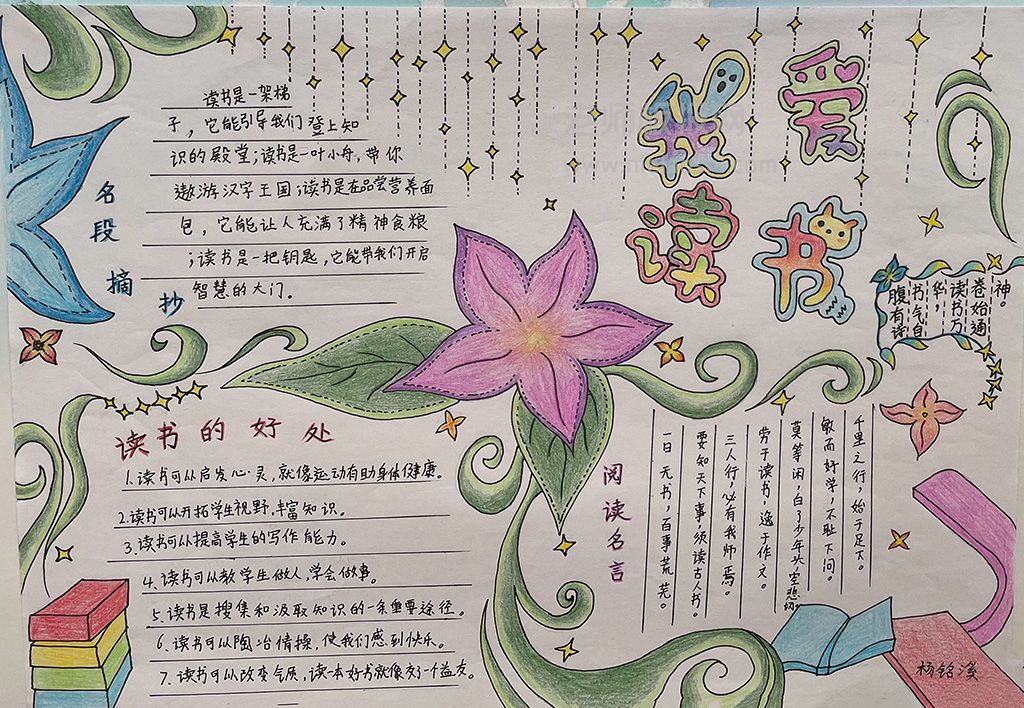 我爱
读书
名段摘抄
读书是一架梯
子，它能引导我们登上知
识的殿堂；读书是一叶小舟，带你
遨游汉字王国；读书是在品尝营养面
包，它能让人充满了精神食粮
；读书是一把钥匙，它能带我们开启
智慧的大门。
神。
卷始通
读书万
华，
书气自
腹有诗
读书的好处
1.读书可以启发心灵，就像运动有助身体健康。
2.读书可以开拓学生视野，丰富知识。
3.读书可以提高学生的写作能力。
4.读书可以教学生做人，学会做事。
5.读书是搜集和汲取知识的一条重要途径。
6.读书可以陶冶情操，使我们感到快乐。
7.读书可以改变气质，读一本好书就像交了一个益友。
阅读名言
千里之行，始于足下。
敏而好学，不耻下问。
莫等闲，白了少年头，空悲切。
劳于读书，逸于作文。
三人行，必有我师焉。
要知天下事，须读古人书。
一日无书，百事荒芜。
杨铭溪